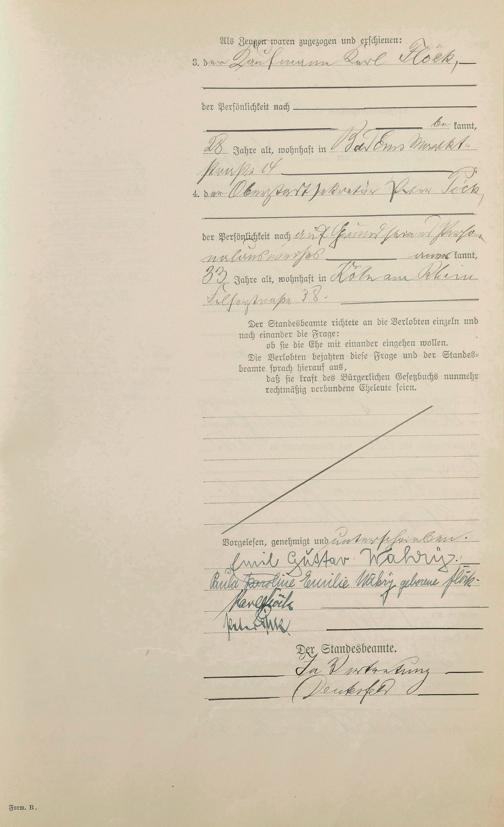 Als Zeugen waren zugezogen und erschienen:
3. der Kaufmann Karl Flöck,
der Persönlichkeit nach
be kannt,
28 Jahre alt, wohnhaft in Bad Ems Markt-
straße 14
4. der Oberstadtsekretär Peter
der Persönlichkeit nach auf Grund seines Perso-
nalausweises kannt,
33 Jahre alt, wohnhaft in Köln am Rhein
38.
Der Standesbeamte richtete an die Verlobten einzeln und
nach einander die Frage:
ob sie die Ehe mit einander eingehen wollen.
Die Verlobten bejahten diese Frage und der Standes-
beamte sprach hierauf aus,
daß sie kraft des Bürgerlichen Gesetzbuchs nunmehr
rechtmäßig verbundene Eheleute seien.
Vorgelesen, genehmigt und unterschrieben.
Emil Gustav Wahrig.
Paula Karoline Emilie Wahrig geborene Flöck.
Karl Flöck
Peter
Der Standesbeamte.
In Vertretung
Form. B.